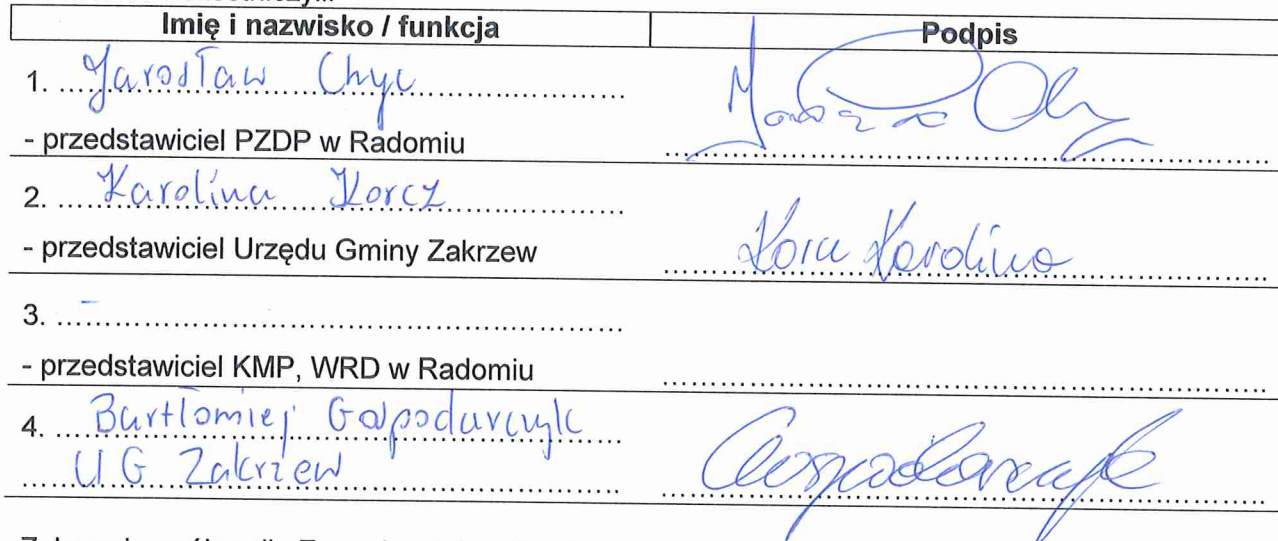 Imię i nazwisko / funkcja Podpis
1. Jarosław Chyc
- przedstawiciel PZDP w Radomiu
2. Karolina Korcz
- przedstawiciel Urzędu Gminy Zakrzew
Korcz Karolina
3. -
- przedstawiciel KMP, WRD w Radomiu
4. Bartłomiej Gospodarczyk
UG Zakrzew
Gospodarczyk